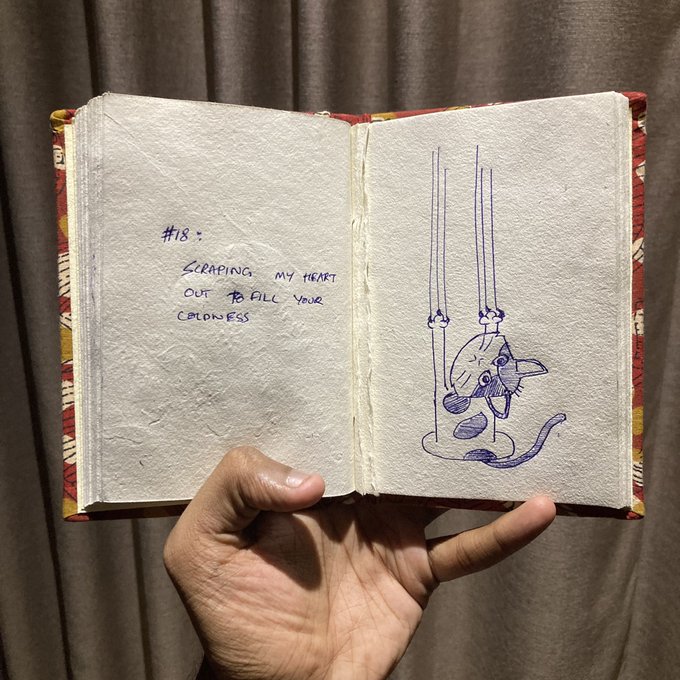 #18:
SCRAPING MY HEART
OUT TO FILL YOUR
COLDNESS